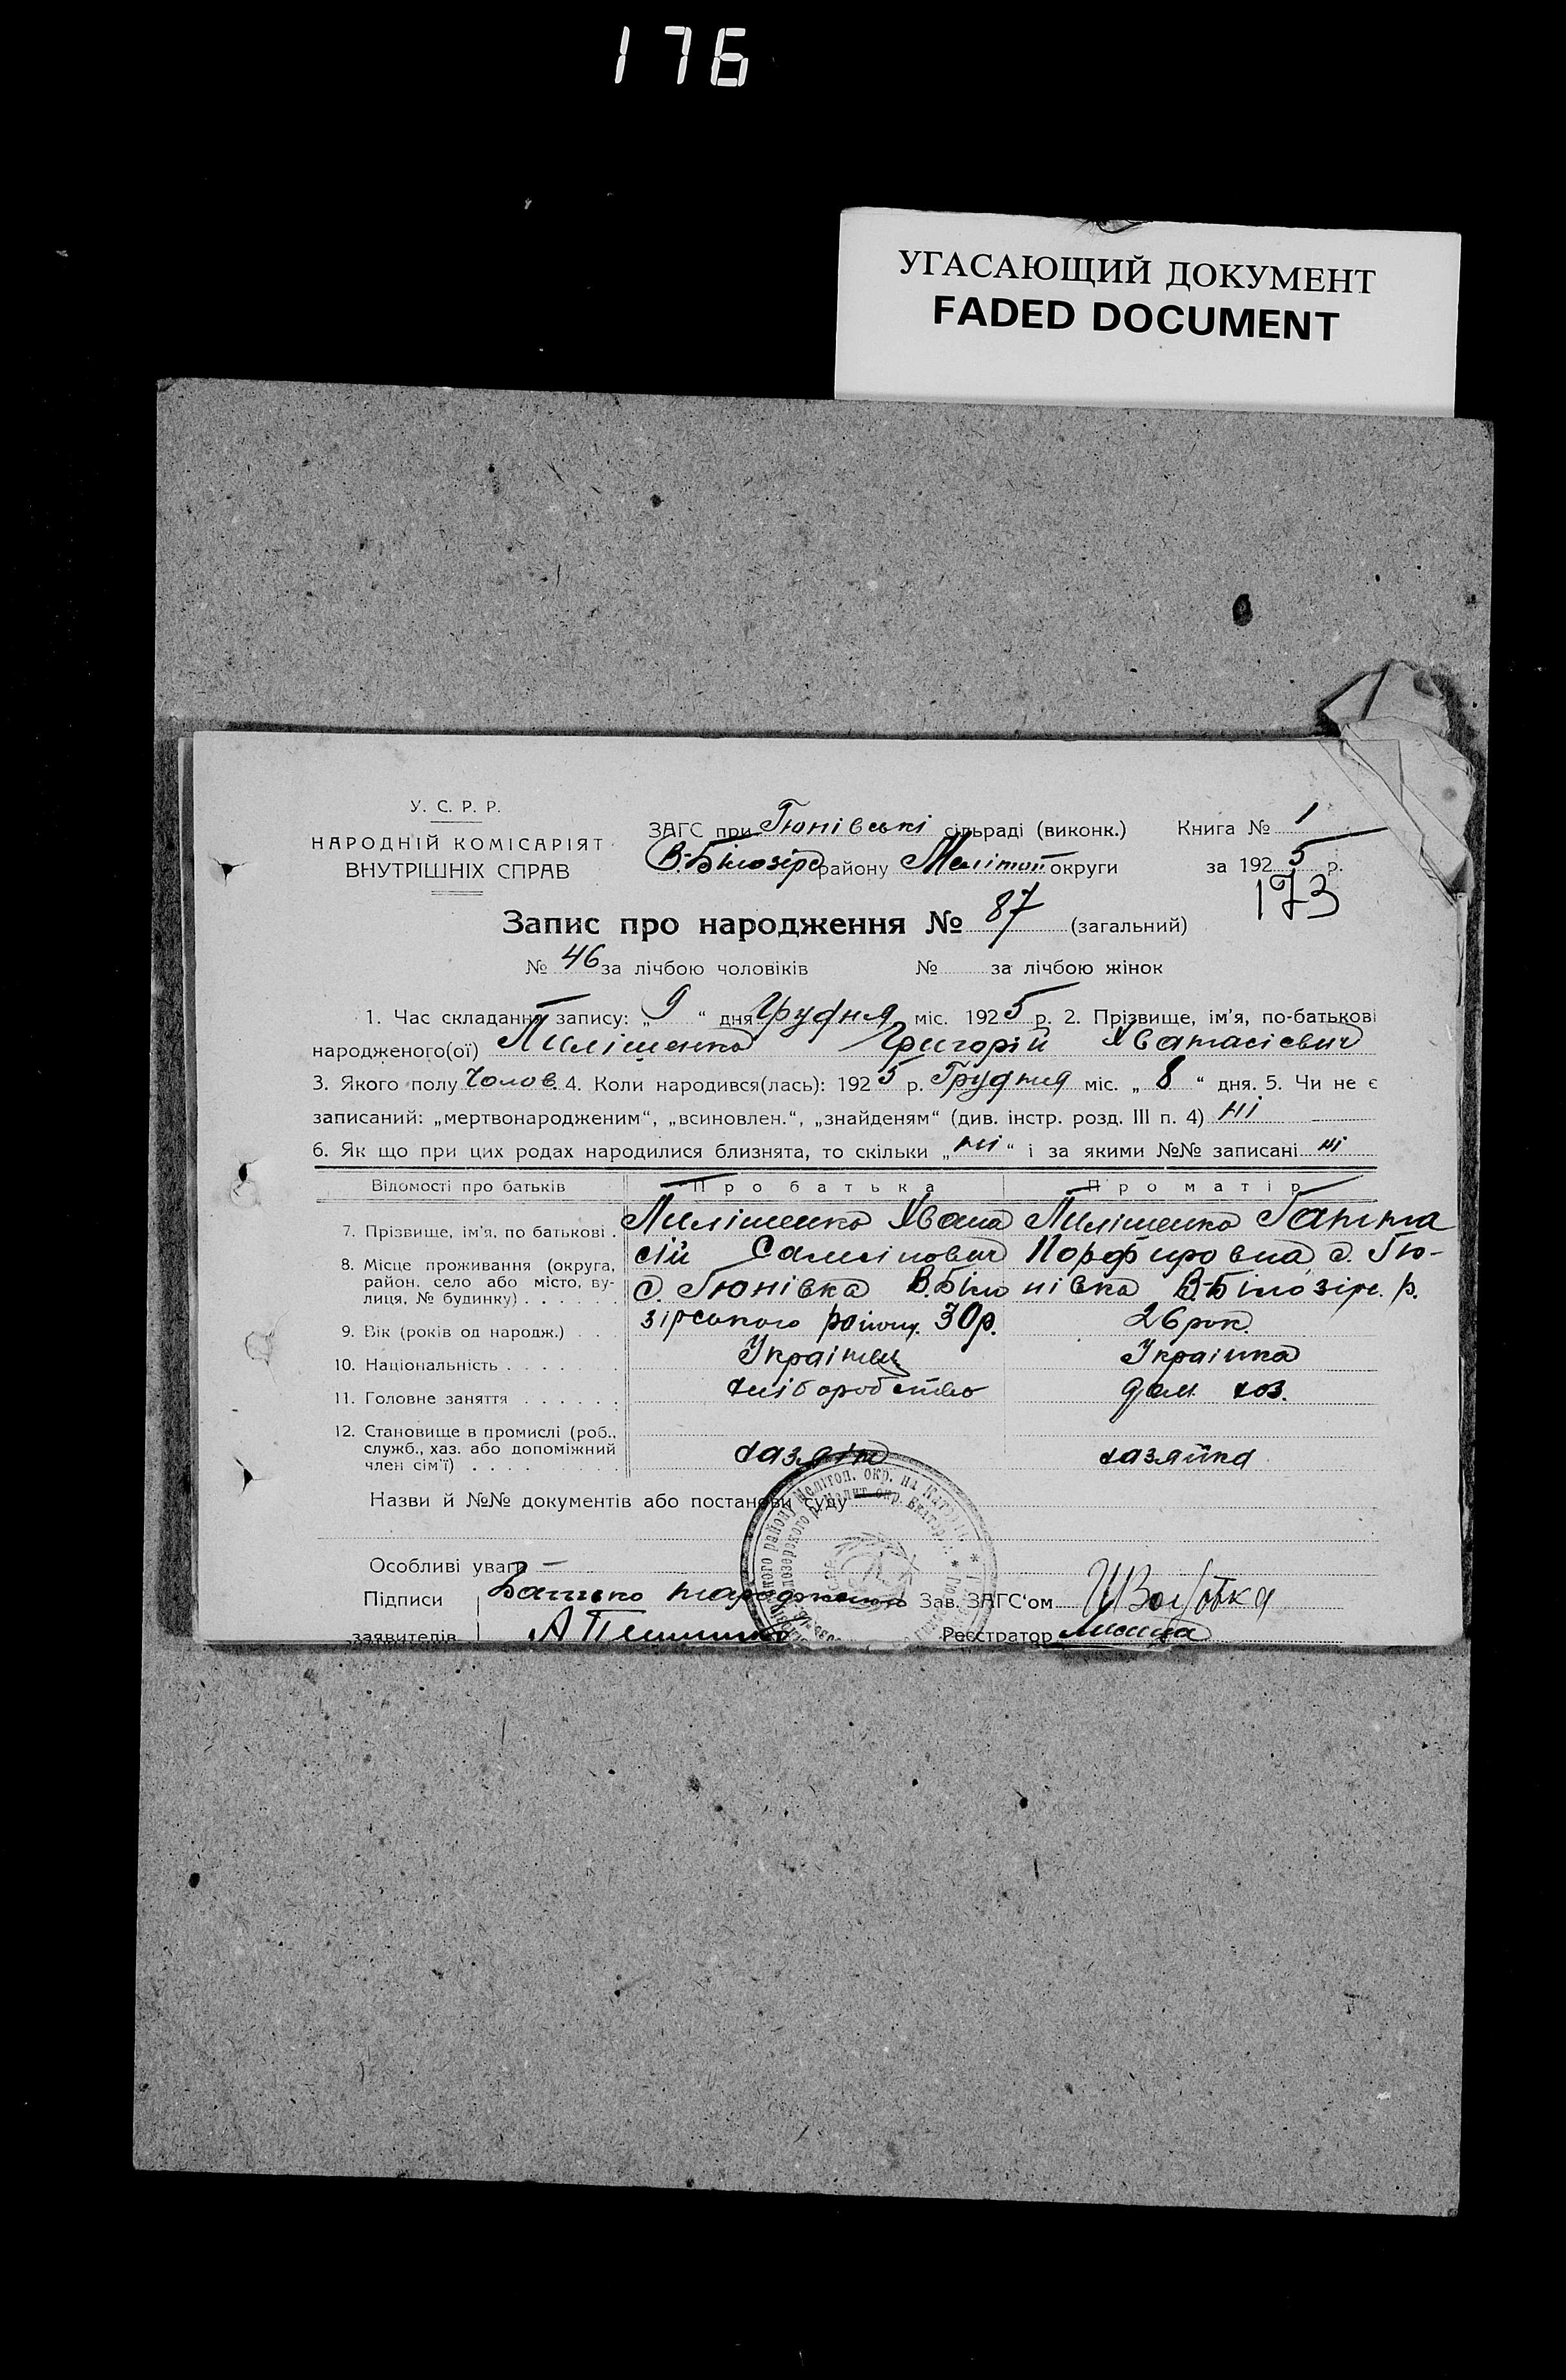 176
УГАСАЮЩИЙ ДОКУМЕНТ
FADED DOCUMENT
У. С. Р. Р.
НАРОДНІЙ КОМІСАРІЯТ
ВНУТРІШНІХ СПРАВ
ЗАГС при Гюнівські сільраді (виконк.) Книга № 1
В.-Білозірс району Мелітоп округи за 1925 р.
173
Запис про народження № 87 (загальний)
№ 46 за лічбою чоловіків № за лічбою жінок
1. Час складання запису: „9“ дня Грудня міс. 1925 р. 2. Прізвище, ім'я, по-батькові
народженого(ої) Пилішенко Григорій Хванасієвич
3. Якого полу Чолов. 4. Коли народився(лась): 1925 р. Грудня міс. „8“ дня. 5. Чи не є
записаний: „мертвонародженим“, „всиновлен.“, „знайденям“ (див. інстр. розд. III п. 4) ні
6. Як що при цих родах народилися близнята, то скільки „ні“ і за якими №№ записані ні
Відомості про батьків Про батька Про матір
7. Прізвище, ім'я, по батькові . Пилішенко Хвана Пилішенко Ганна
сій Самсінович Порфировна с. Гю-
8. Місце проживання (округа, район, село або місто, вулиця, № будинку) . . . . . . с. Гюнівка В.Біло нівка В-Білозірс. р.
9. Вік (років од народж.) . . . зірського району. 30р. 26 рок.
10. Національність . . . . . Українец Українка
11. Головне заняття . . . . . . хліборобство дом. хоз.
12. Становище в промислі (роб., служб., хаз. або допоміжний член сім'ї) . . . . хазяін хазяйка
Назви й №№ документів або постанови суду
Особливі уваги —
Підписи Батько народженого Зав. ЗАГС'ом
заявителів Реєстратор